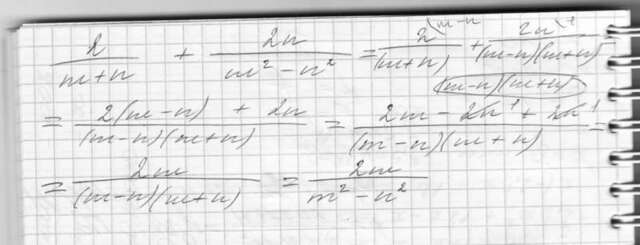 2/(m+n) + 2n/(m²-n²) = 2^(m-n/(m+n) + 2n^(1/((m-n)(m+n))
(m-n)(m+n)
= (2(m-n) + 2n)/((m-n)(m+n)) = (2m - 2n¹ + 2n¹)/((m-n)(m+n)) =
= 2m/((m-n)(m+n)) = 2m/(m²-n²)